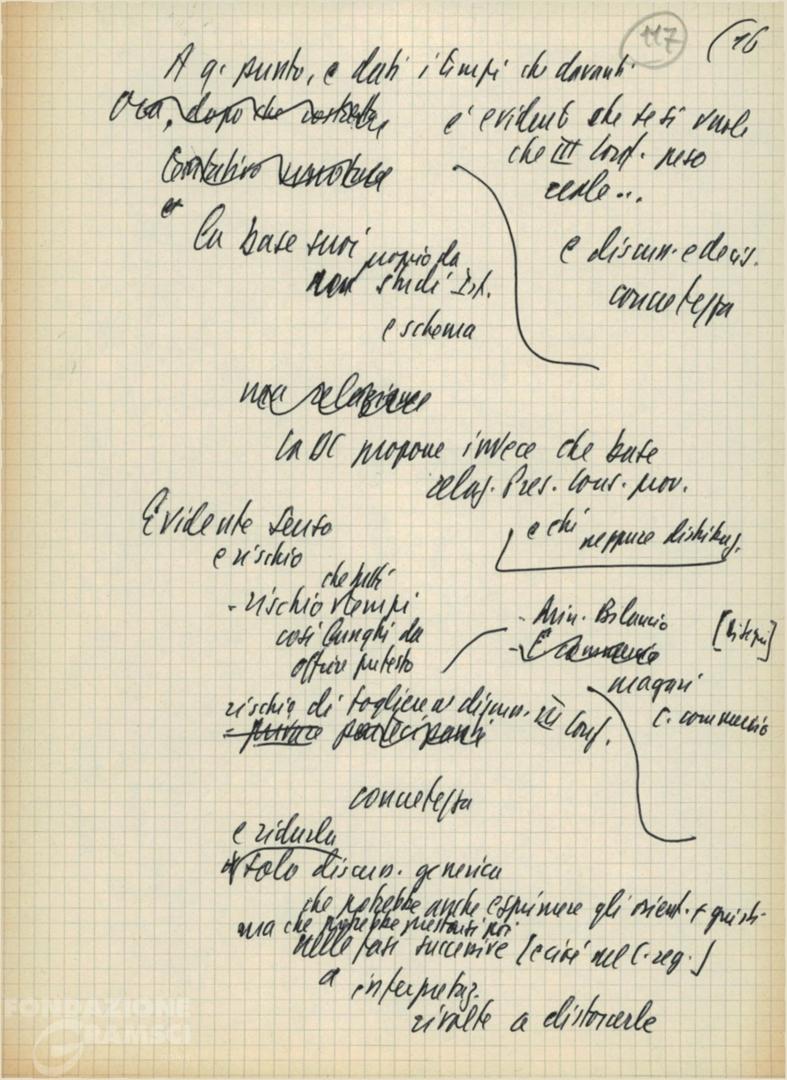 117
16
A q. punto, e dati i tempi che davanti
Ora, dopo che
è evidente che se si vuole
che III Conf. peso
reale...
tentativo
e
la base
proprio da
non studi Ist.
e schema
e discuss. e decis.
concretezza
una relazione
la DC propone invece che base
relaz. Pres. Cons. prov.
e chi neppure distribuz.
Evidente senso
e rischio
che tutti
- rischio tempi
così lunghi da
offrire pretesto
- Min. Bilancio
- C. Commercio
magari
C. commercio
rischio di togliere a discuss. III Conf.
- partecipanti
concretezza
e ridurla
a solo discuss. generica
che potrebbe anche esprimere gli orient. + giusti
ma che potrebbe prestarsi poi
nelle fasi successive [e cioè nel C. reg.]
a interpretaz.
rivolte a distorcerle
FONDAZIONE
GRAMSCI